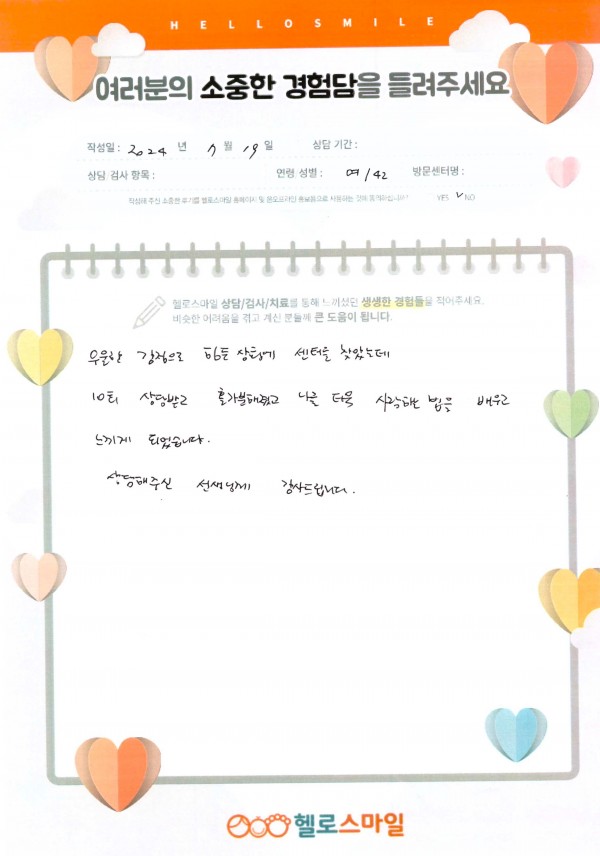 HELLOSMILE
여러분의 소중한 경험담을 들려주세요
작성일 : 2024 년 7 월 19 일 상담 기간 :
상담 검사 항목 : 연령 성별 : 여/42 방문센터명 :
작성해 주신 소중한 후기를 헬로스마일 홈페이지 및 온오프라인 홍보용으로 사용하는 것에 동의하십니까? YES ✓NO
헬로스마일 상담/검사/치료를 통해 느끼셨던 생생한 경험들을 적어주세요.
비슷한 어려움을 겪고 계신 분들께 큰 도움이 됩니다.
우울한 감정으로 힘든 상황에 센터를 찾았는데
10회 상담받고 홀가분해졌고 나를 더욱 사랑하는 법을 배우고
느끼게 되었습니다.
상담해주신 선생님께 감사드립니다.
헬로스마일